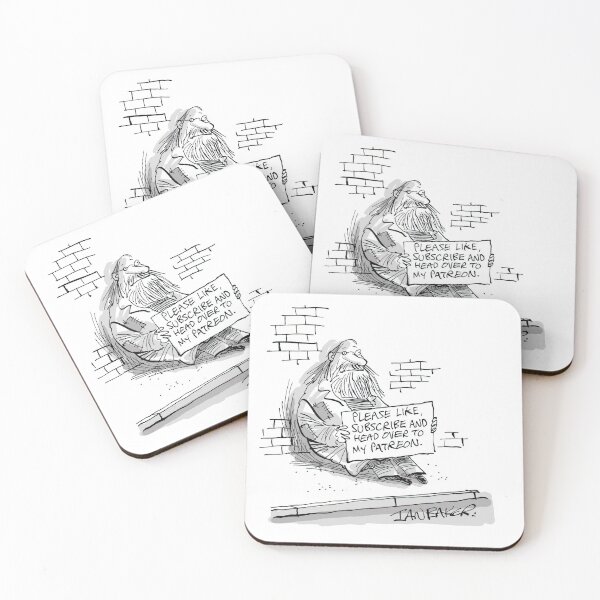 LIKE,
AND
PLEASE LIKE,
SUBSCRIBE AND
HEAD OVER TO
MY PATREON.
PLEASE LIKE,
SUBSCRIBE AND
HEAD OVER TO
MY PATREON.
PLEASE LIKE,
SUBSCRIBE AND
HEAD OVER TO
MY PATREON.
IAN BAKER.